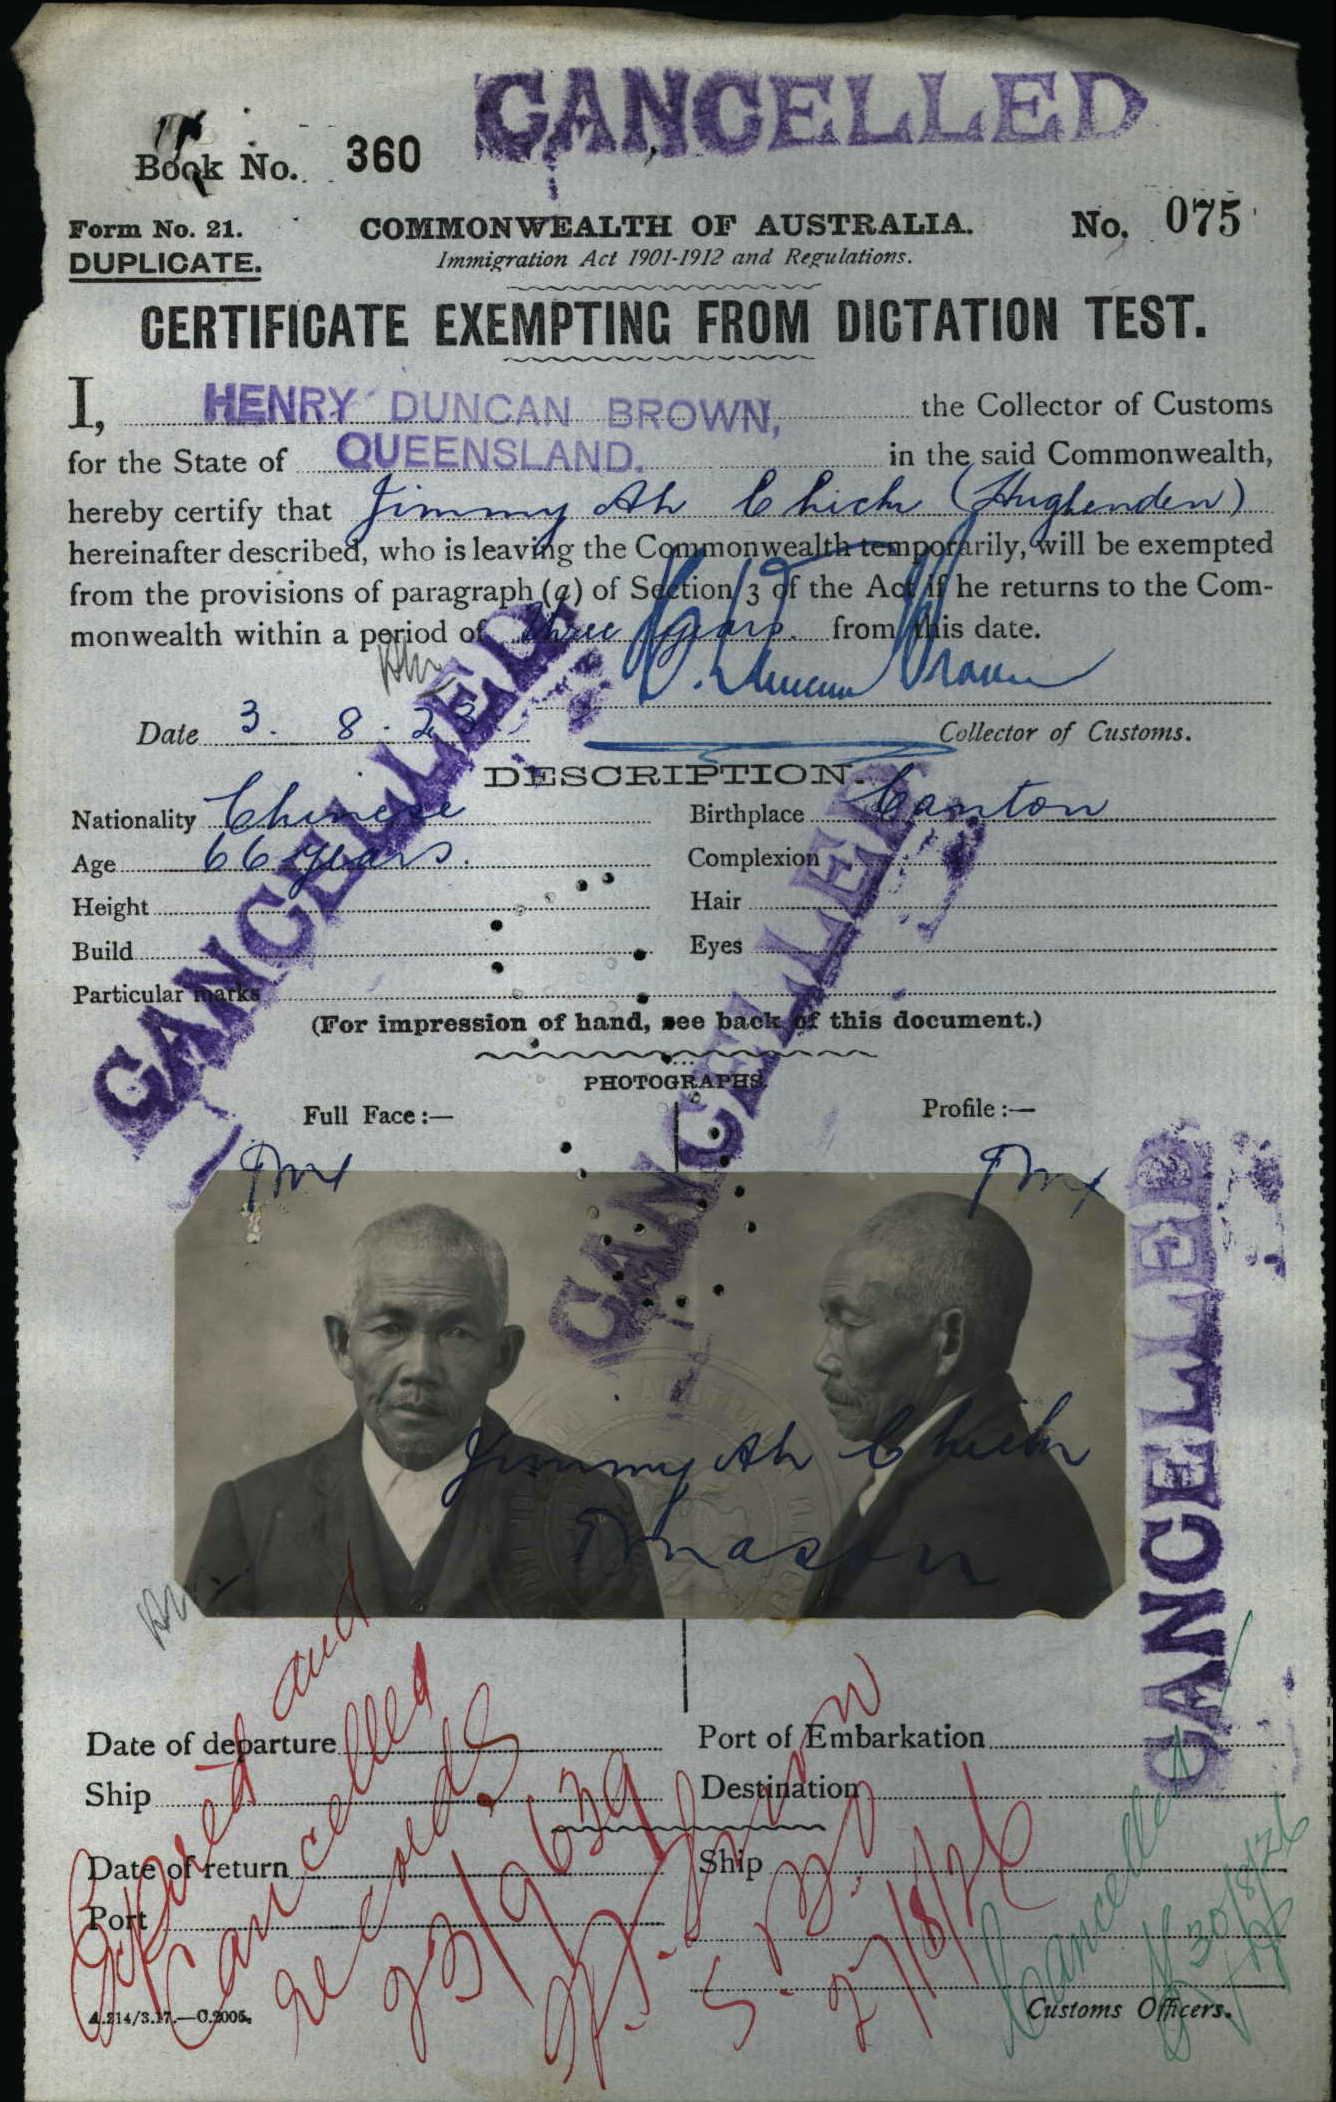 CANCELLED
Book No. 360
Form No. 21. COMMONWEALTH OF AUSTRALIA. No. 075
DUPLICATE. Immigration Act 1901-1912 and Regulations.
CERTIFICATE EXEMPTING FROM DICTATION TEST.
I, HENRY DUNCAN BROWN, the Collector of Customs
for the State of QUEENSLAND. in the said Commonwealth,
hereby certify that Jimmy Ah Chick (Hughenden)
hereinafter described, who is leaving the Commonwealth temporarily, will be exempted
from the provisions of paragraph (a) of Section 3 of the Act if he returns to the Com-
monwealth within a period of three years. from this date.
H. Duncan Brown
Date 3. 8. 23 Collector of Customs.
DESCRIPTION.
Nationality Chinese Birthplace Canton
Age 66 years. Complexion
Height Hair
Build Eyes
Particular marks
(For impression of hand, see back of this document.)
CANCELLED
CANCELLED
PHOTOGRAPHS.
Full Face :— Profile :—
CANCELLED
Jimmy Ah Chick
Date of departure Port of Embarkation
Ship Destination
Date of return Ship
Port
Expired and
Cancelled
records
23/9639
27/8/26
Cancelled
30/8/26
Customs Officers.
A.214/3.17.—C.2005.